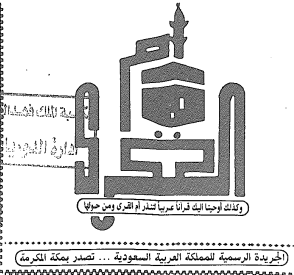 أم القرى
الملك فهد
وكذلك أوحينا اليك قرآناً عربياً لتنذر أم القرى ومن حولها
(الجريدة الرسمية للمملكة العربية السعودية ... تصدر بمكة المكرمة)